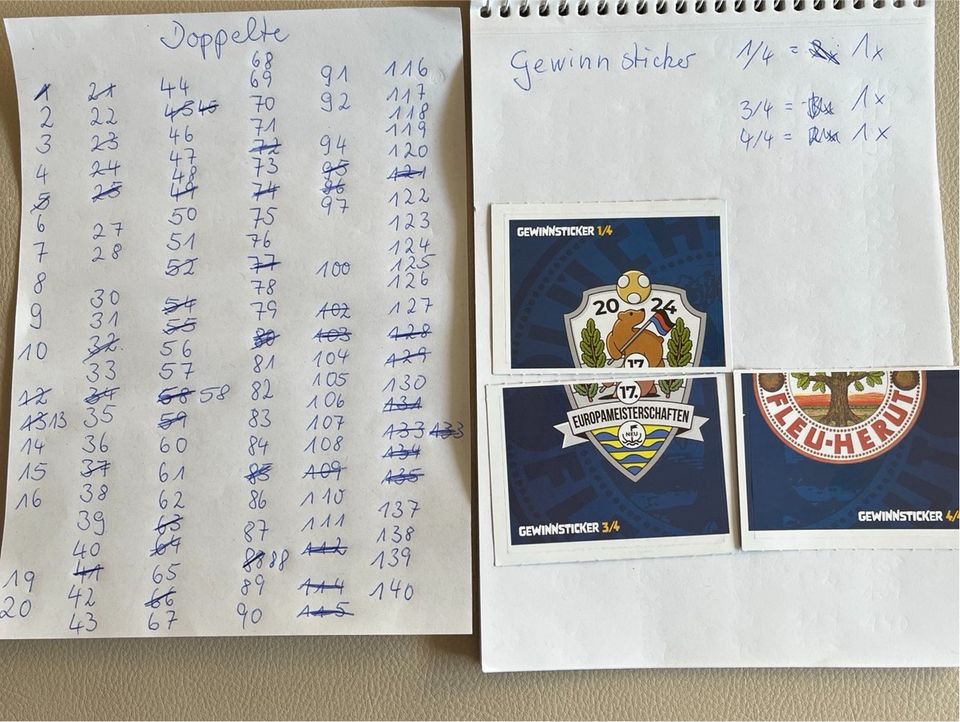 Doppelte
1
2
3
4
5
6
7
8
9
10
12
13 13
14
15
16
19
20
21
22
23
24
25
27
28
30
31
32
33
34
35
36
37
38
39
40
41
42
43
44
45 45
46
47
48
49
50
51
52
54
55
56
57
58 58
59
60
61
62
63
64
65
66
67
68
69
70
71
72
73
74
75
76
77
78
79
80
81
82
83
84
85
86
87
88 88
89
90
91
92
94
95
96
97
100
102
103
104
105
106
107
108
109
110
111
112
114
115
116
117
118
119
120
121
122
123
124
125
126
127
128
129
130
131
133 133
134
135
137
138
139
140
Gewinnsticker
1/4 = 1x
3/4 = 1x
4/4 = 1x
GEWINNSTICKER 1/4
20 24
17.
17.
EUROPAMEISTERSCHAFTEN
NEU
GEWINNSTICKER 3/4
FLEU-HERUT
GEWINNSTICKER 4/4